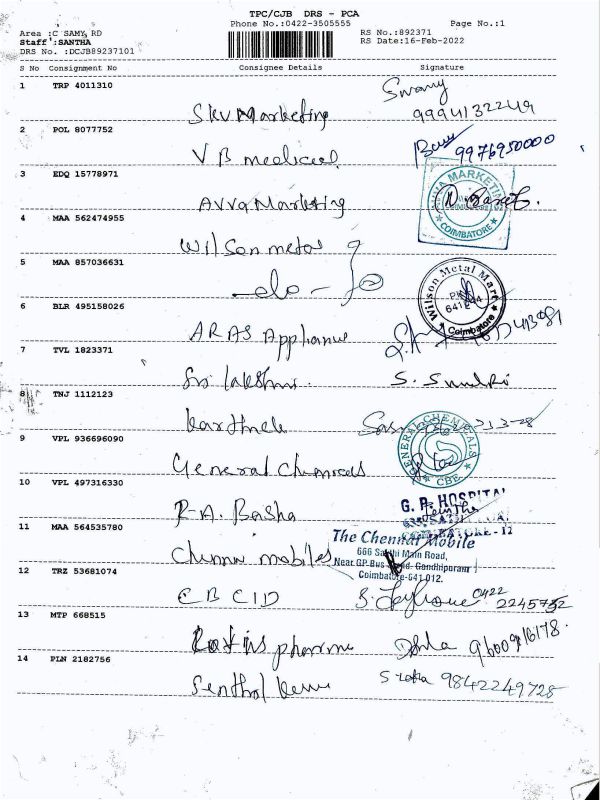 TPC/CJB DRS - PCA
Phone No.:0422-3505555 Page No.:1
Area :C SAMY RD RS No.:892371
Staff :SANTHA RS Date:16-Feb-2022
DRS No. :DCJB89237101
S No Consignment No Consignee Details Signature
1 TRP 4011310 Swamy
SKV Marketing 9994132249
2 POL 8077752
VB medical 9976950000
3 EDQ 15778971
Avva Marketing AVVA MARKETING COIMBATORE
4 MAA 562474955
Wilson metas
5 MAA 857036631
-do- Wilson Metal Mart Coimbatore
6 BLR 495158026
ARAS Appliance
7 TVL 1823371
Sri lakshmi. S. Sundri
8 TNJ 1112123
9 VPL 936696090
General Chemicals GENERAL CHEMICALS CBE
10 VPL 497316330 G. P. HOSPITAL
R.A. Basha
11 MAA 564535780 The Chennai Mobile
666 Sathi Main Road,
Chennai mobiles Near GP Bus Stand- Gandhipuram
Coimbatore-641 012.
12 TRZ 53681074
CBCID 0422 2245752
13 MTP 668515
pharma 9600916178.
14 PLN 2182756
9842249728